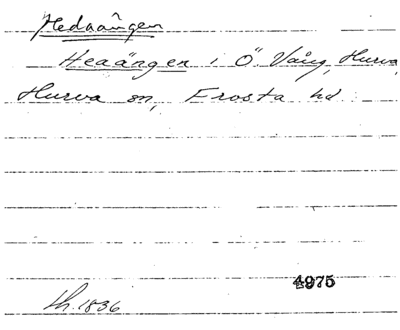 Hedaängen
Heaängen i Ö. Vång, Hurva,
Hurva sn, Frosta hd
4975
lh. 1836